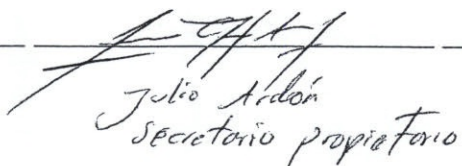 Julio Ardón
Secretario propietario